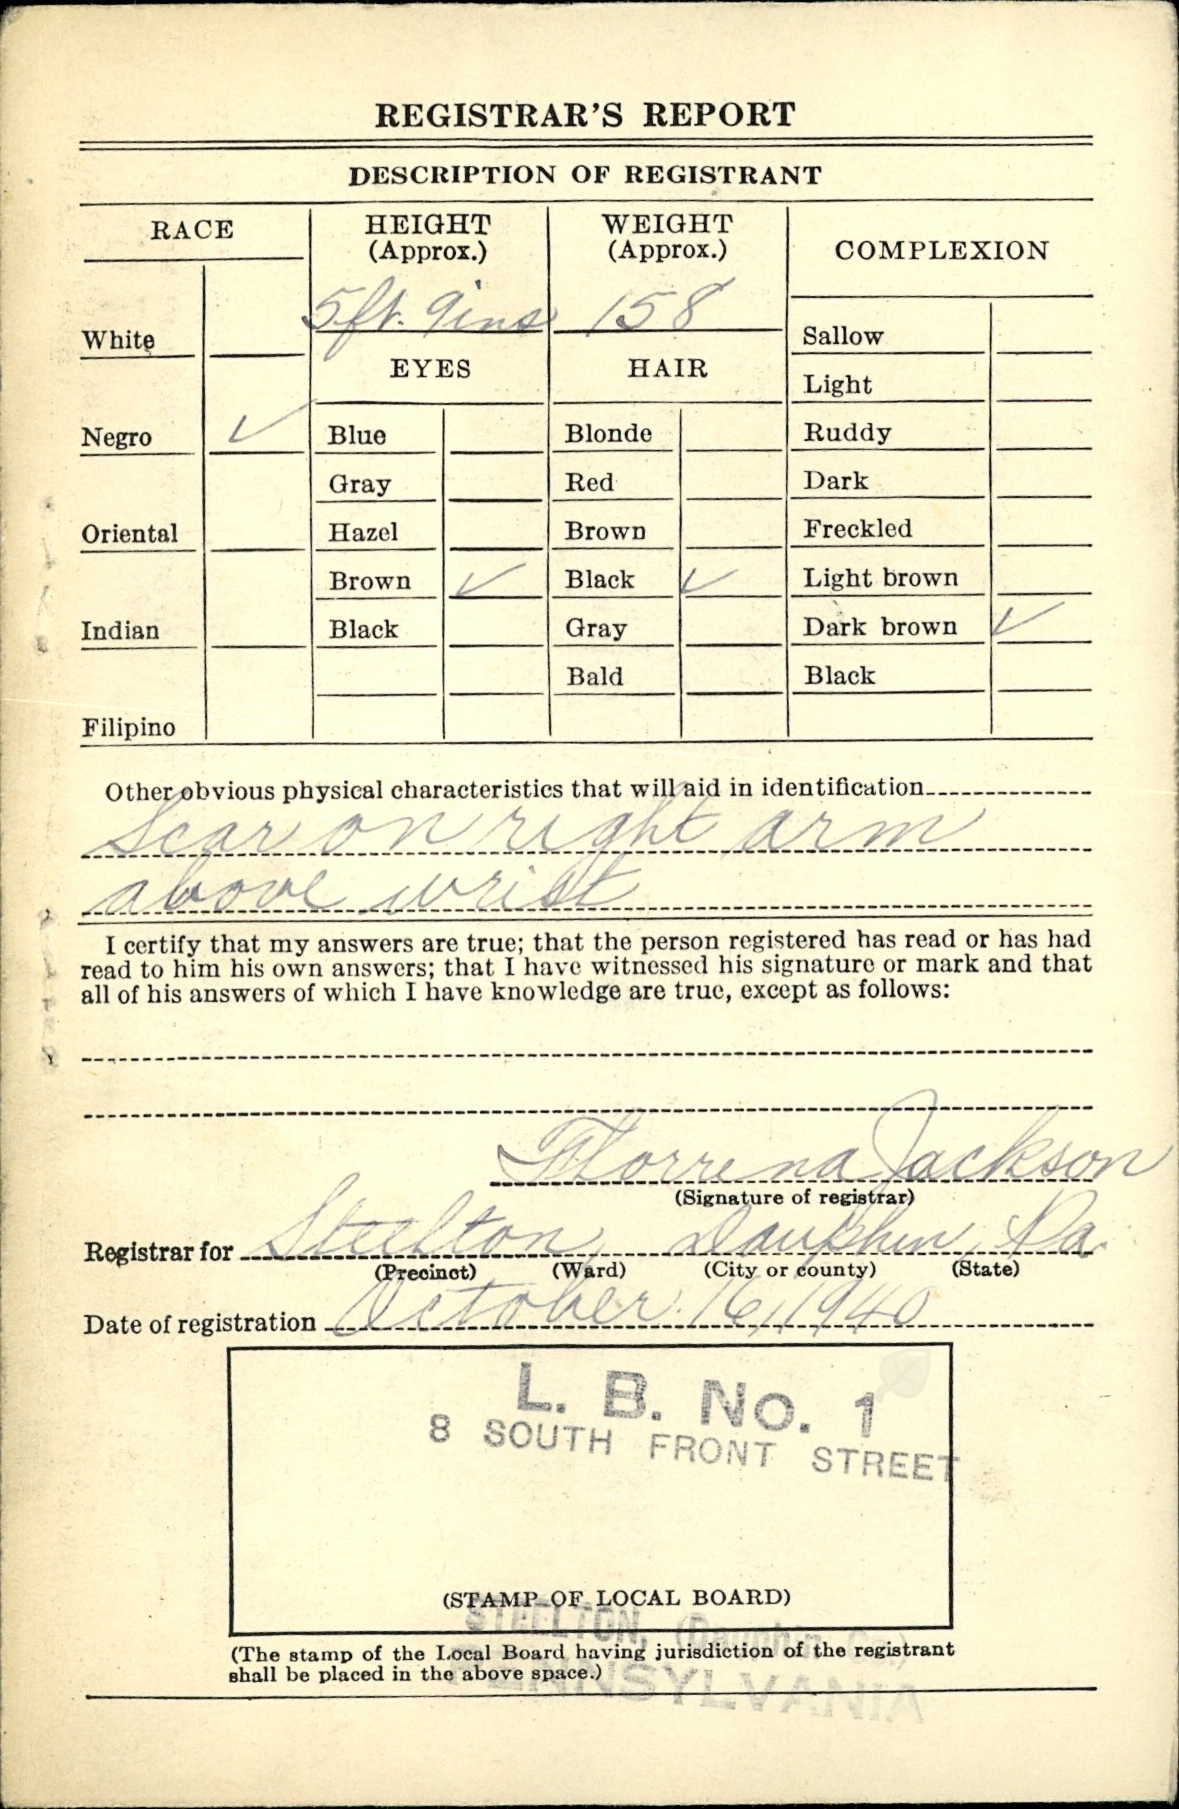 REGISTRAR'S REPORT
DESCRIPTION OF REGISTRANT
RACE
HEIGHT (Approx.)
WEIGHT (Approx.)
COMPLEXION
5 ft. 9 ins
158
White
Negro ✓
Oriental
Indian
Filipino
EYES
Blue
Gray
Hazel
Brown ✓
Black
HAIR
Blonde
Red
Brown
Black ✓
Gray
Bald
Sallow
Light
Ruddy
Dark
Freckled
Light brown
Dark brown ✓
Black
Other obvious physical characteristics that will aid in identification
Scar on right arm
above wrist
I certify that my answers are true; that the person registered has read or has had
read to him his own answers; that I have witnessed his signature or mark and that
all of his answers of which I have knowledge are true, except as follows:
Florrena Jackson
(Signature of registrar)
Registrar for Steelton, Dauphin, Pa.
(Precinct) (Ward) (City or county) (State)
Date of registration October 16, 1940
L. B. NO. 1
8 SOUTH FRONT STREET
(STAMP OF LOCAL BOARD)
STEELTON, (Dauphin Co.)
(The stamp of the Local Board having jurisdiction of the registrant
shall be placed in the above space.)
PENNSYLVANIA